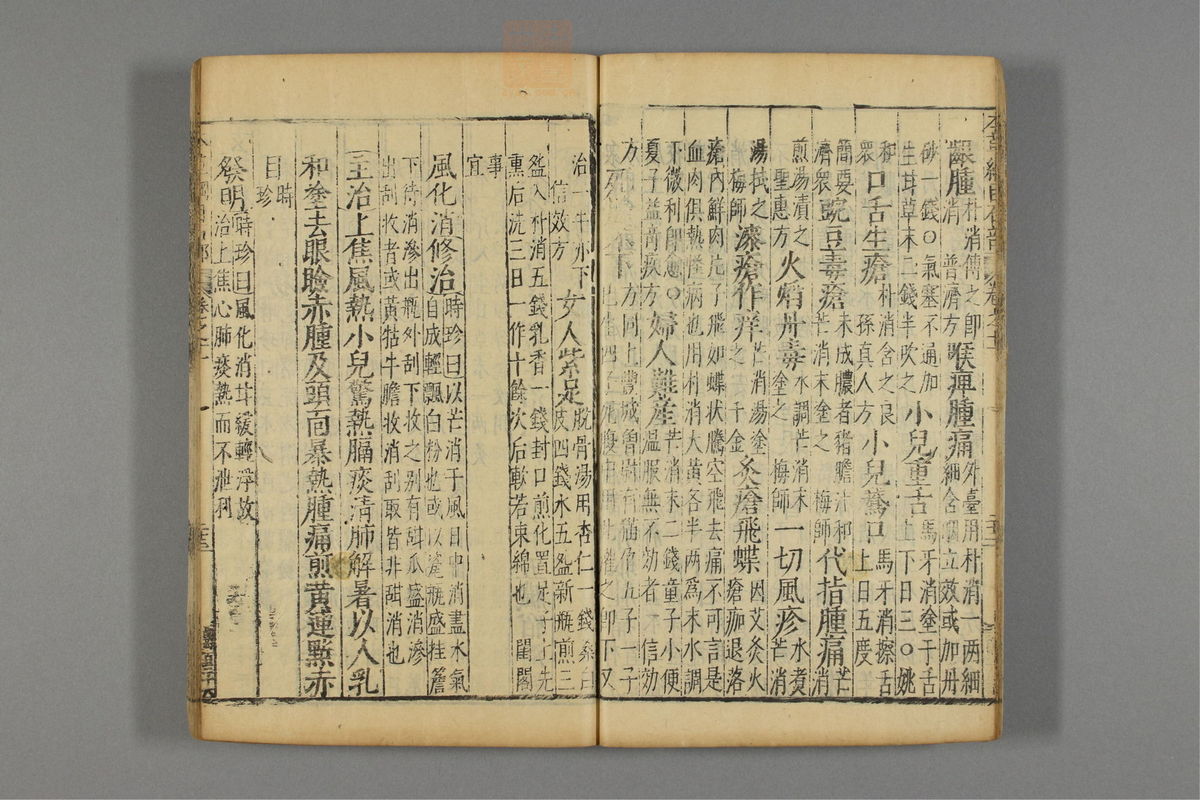 齦腫消 朴消傅之即 普濟方 喉痺腫痛 外臺用朴消一两細細含嚥立效或加丹
砂一錢○氣塞不通加生甘草末二錢半吹之 小兒重舌 馬牙消塗于舌上下日三○姚
和眾 口舌生瘡 朴消含之良 孫真人方 小兒鵞口 馬牙消擦舌上日五度
簡要濟眾 豌豆毒瘡 未成膿者豬膽汁和芒消末塗之 梅師 代指腫痛 芒消
煎湯漬之 聖惠方 火焰丹毒 水調芒消末塗之 梅師 一切風疹 水煮芒消
湯拭之 梅師 漆瘡作痒 芒消湯塗之 千金 灸瘡飛蝶 因艾灸火瘡痂退落
瘡內鮮肉片子飛如蝶状騰空飛去痛不可言是血肉俱熱怪病也用朴消大黃各半两為末水調
下微利即愈○夏子益奇疾方 婦人難產 芒消末二錢童子小便溫服無不効者 信効
方 死 下
治一半水下 信效方 女人紮足 脫骨湯用杏仁一錢桑白皮四錢水五盌新瓶煎三
盌入朴消五錢乳香一錢封口煎化置足于上先熏后洗三日一作十餘次后軟若束綿也 閨閣
事宜
風化消修治 時珍曰以芒消于風日中消盡水氣自成輕飄白粉也或以瓷瓶盛挂簷
下待消滲出瓶外刮下收之别有甜瓜盛消滲出刮收者或黃牯牛膽收消刮取皆非甜消也
主治上焦風熱小兒驚熱膈痰清肺解暑以人乳
和塗去眼瞼赤腫及頭面暴熱腫痛煎黃連點赤
目 時珍
發明 時珍曰風化消甘緩輕浮故治上焦心肺痰熱而不泄利